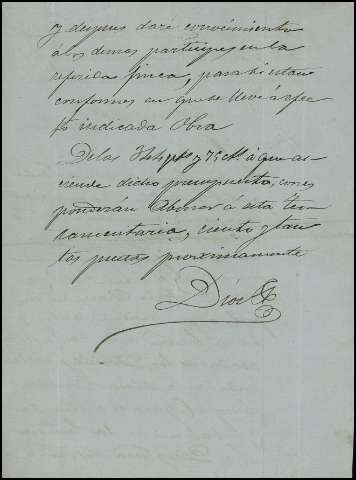 y despues daré conocimiento
á los demas participes en la
referida finca, para si estan
conformes en que se lleve á efec
to indicada Obra
De las y 75 Cts. á que as-
ciende dicho presupuesto, corres
ponderán abonar á esta tes
tamentaria, ciento y tan
tos pesos proximamente